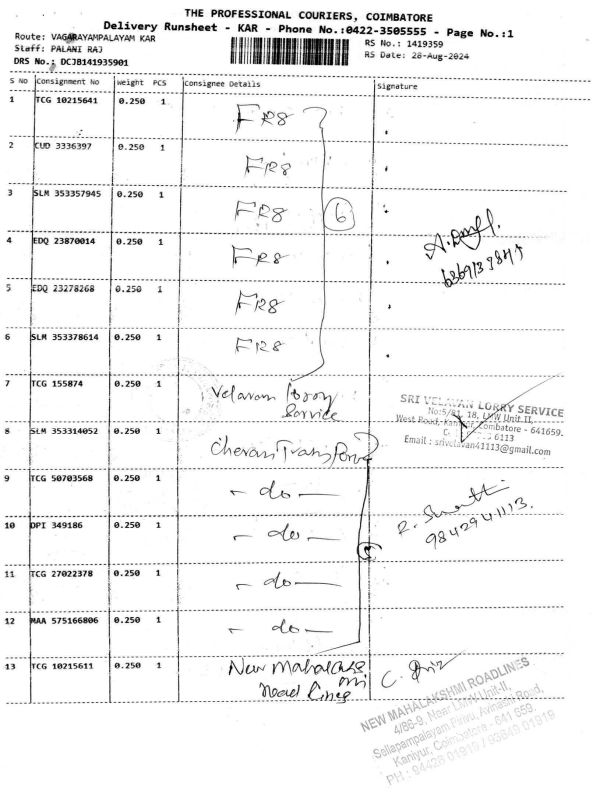 THE PROFESSIONAL COURIERS, COIMBATORE
Delivery Runsheet - KAR - Phone No.:0422-3505555 - Page No.:1
Route: VAGARAYAMPALAYAM KAR
RS No.: 1419359
Staff: PALANI RAJ
RS Date: 28-Aug-2024
DRS No.: DCJB141935901
S No Consignment No Weight PCS Consignee Details Signature
1 TCG 10215641 0.250 1 FR8
2 CUD 3336397 0.250 1 FR8
3 SLM 353357945 0.250 1 FR8 6
4 EDQ 23870014 0.250 1 FR8
5 EDQ 23278268 0.250 1 FR8
6 SLM 353378614 0.250 1 FR8
7 TCG 155874 0.250 1 Velavan Lorry
Service
SRI VELAVAN LORRY SERVICE
No:5/81, 18, LMW Unit II,
West Road, Kaniyur, Coimbatore - 641659.
6113
Email : srivelavan41113@gmail.com
8 SLM 353314052 0.250 1 Cheran Transport
9 TCG 50703568 0.250 1 - do -
10 DPI 349186 0.250 1 - do -
9842941113.
11 TCG 27022378 0.250 1 - do -
12 MAA 575166806 0.250 1 - do -
13 TCG 10215611 0.250 1 New Mahalakshmi
Road Lines
NEW MAHALAKSHMI ROADLINES
4/86-9, Near LMW Unit-II,
Sellapampalayam Pirivu, Avinashi Road,
Kaniyur, Coimbatore - 641 659.
PH : 94428 01919 / 93649 01919